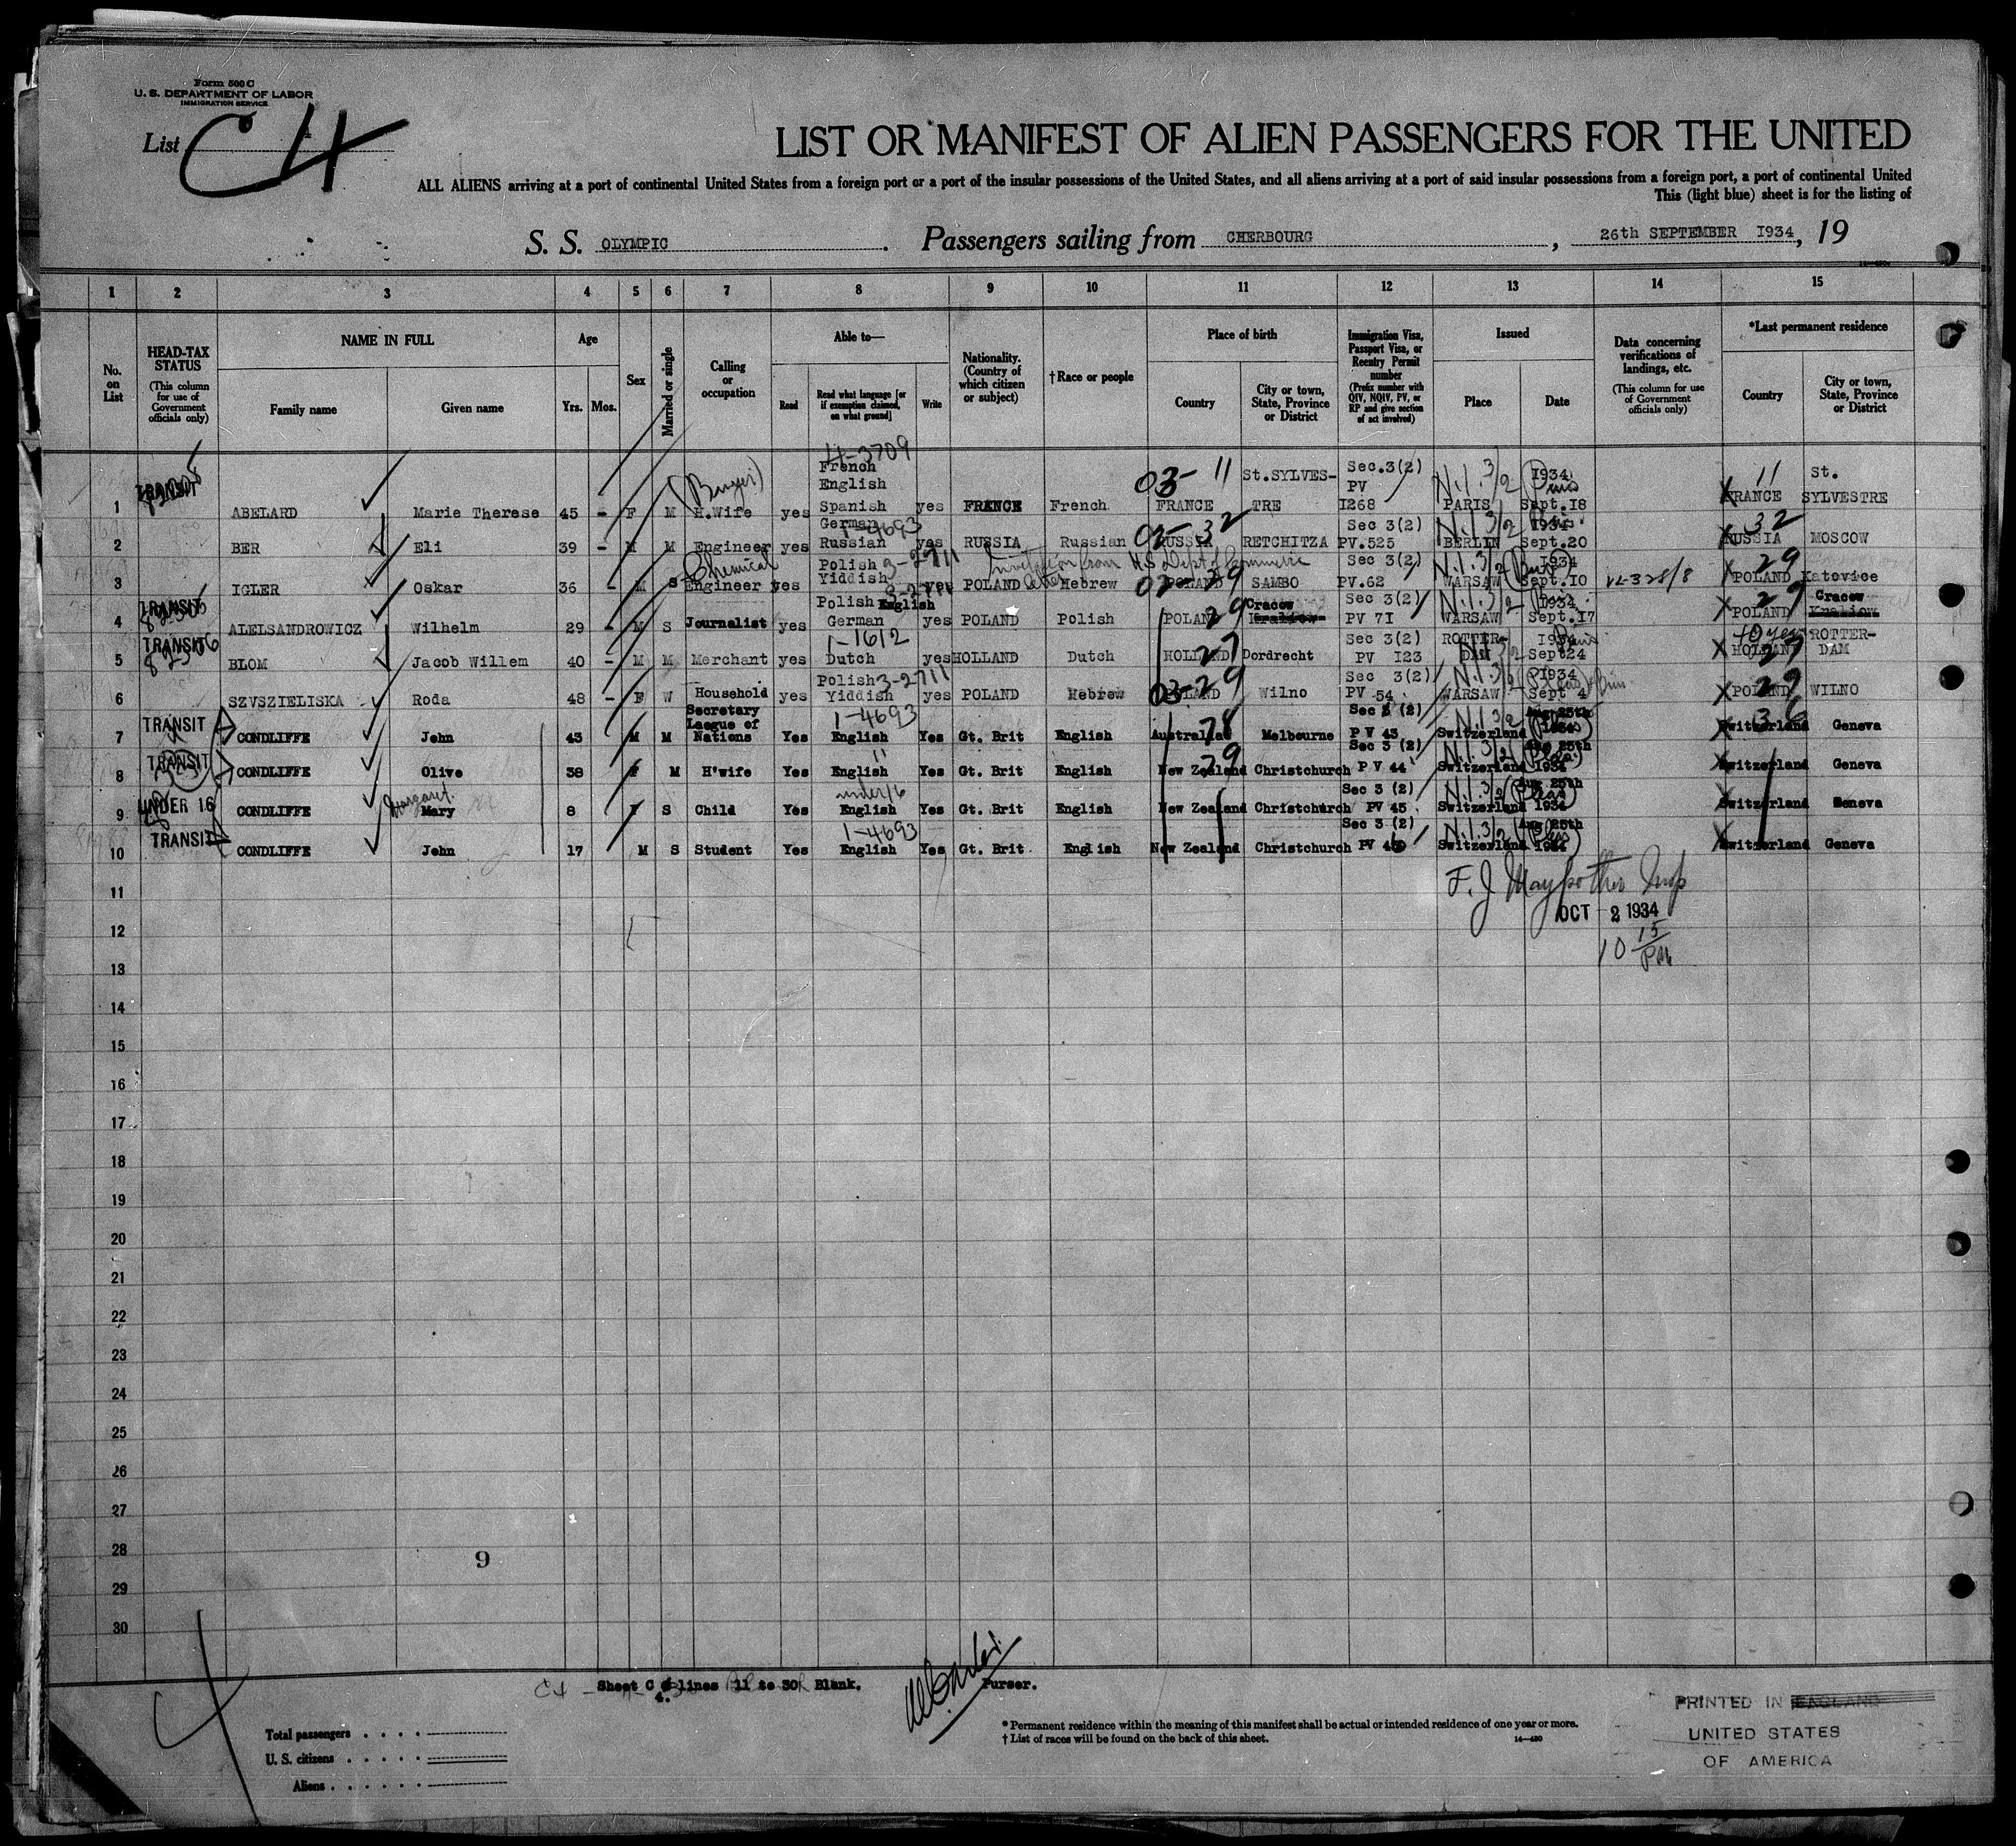 Form 500 C
U. S. DEPARTMENT OF LABOR
IMMIGRATION SERVICE
List C 4
LIST OR MANIFEST OF ALIEN PASSENGERS FOR THE UNITED
ALL ALIENS arriving at a port of continental United States from a foreign port or a port of the insular possessions of the United States, and all aliens arriving at a port of said insular possessions from a foreign port, a port of continental United
This (light blue) sheet is for the listing of
S. S. OLYMPIC . Passengers sailing from CHERBOURG , 26th SEPTEMBER I934, 19
1 2 3 4 5 6 7 8 9 10 11 12 13 14 15
No. on List
HEAD-TAX STATUS (This column for use of Government officials only)
NAME IN FULL
Family name Given name
Age
Yrs. Mos.
Sex
Married or single
Calling or occupation
Able to—
Read Read what language [or if exemption claimed, on what ground] Write
Nationality. (Country of which citizen or subject)
†Race or people
Place of birth
Country City or town, State, Province or District
Immigration Visa, Passport Visa, or Reentry Permit number (Prefix number with QIV, NQIV, PV, or RP and give section of act involved)
Issued
Place Date
Data concerning verifications of landings, etc. (This column for use of Government officials only)
*Last permanent residence
Country City or town, State, Province or District
4-3709
TRANSIT 1 ABELARD Marie Therese 45 - F M H.Wife yes French English Spanish yes FRANCE French 03- 11 FRANCE St.SYLVES-TRE Sec.3(2) PV I268 N.1.3/2 PARIS I934 Sept.I8 11 FRANCE St. SYLVESTRE
2 BER Eli 39 - M M Engineer yes German Russian 1-4693 yes RUSSIA Russian 03-32 RUSSIA RETCHITZA Sec 3(2) PV.525 N.1.3/2 BERLIN I934 Sept.20 32 RUSSIA MOSCOW
Invitation from U.S. Dept of Commerce
3 IGLER Oskar 36 - M S Chemical Engineer yes Polish Yiddish 3-2711 yes POLAND Hebrew 02-29 POLAND SAMBO Sec 3(2) PV.62 N.1.3/2 WARSAW I934 Sept.I0 29 POLAND Katovice
TRANSIT 4 ALELSANDROWICZ Wilhelm 29 - M S Journalist yes Polish English German yes POLAND Polish 29 POLAND Cracow Sec 3(2) PV 7I N.1.3/2 WARSAW I934 Sept.I7 29 POLAND Cracow
TRANSIT 5 BLOM Jacob Willem 40 - M M Merchant yes 1-1612 Dutch yes HOLLAND Dutch 27 HOLLAND Dordrecht Sec 3(2) PV I23 ROTTER-DAM I934 Sept24 27 HOLLAND ROTTER-DAM
6 SZVSZIELISKA Roda 48 - F W Household yes Polish 3-2711 Yiddish yes POLAND Hebrew 03-29 POLAND Wilno Sec 3(2) PV 54 WARSAW I934 Sept 4 29 POLAND WILNO
TRANSIT 7 CONDLIFFE John 43 M M Secretary League of Nations Yes 1-4693 English Yes Gt. Brit English 78 Australia Melbourne Sec 3 (2) P V 43 N.1.3/2 Switzerland Aug 25th 1934 36 Switzerland Geneva
TRANSIT 8 CONDLIFFE Olive 38 F M H'wife Yes " English Yes Gt. Brit English 79 New Zealand Christchurch Sec 3 (2) P V 44 N.1.3/2 Switzerland Aug 25th 1934 Switzerland Geneva
UNDER 16 9 CONDLIFFE Margaret Mary 8 F S Child Yes under 16 English Yes Gt. Brit English New Zealand Christchurch Sec 3 (2) PV 45 N.1.3/2 Switzerland Aug 25th 1934 Switzerland Geneva
TRANSIT 10 CONDLIFFE John 17 M S Student Yes 1-4693 English Yes Gt. Brit English New Zealand Christchurch Sec 3 (2) PV N.1.3/2 Switzerland Aug 25th 1934 Switzerland Geneva
11
OCT 2 1934
12
10 15 PM
13
14
15
16
17
18
19
20
21
22
23
24
25
26
27
28
9
29
30
Sheet C 4. lines 11 to 30 Blank.
Purser.
Total passengers
U. S. citizens
Aliens
* Permanent residence within the meaning of this manifest shall be actual or intended residence of one year or more.
† List of races will be found on the back of this sheet.
14—430
PRINTED IN ENGLAND
UNITED STATES
OF AMERICA